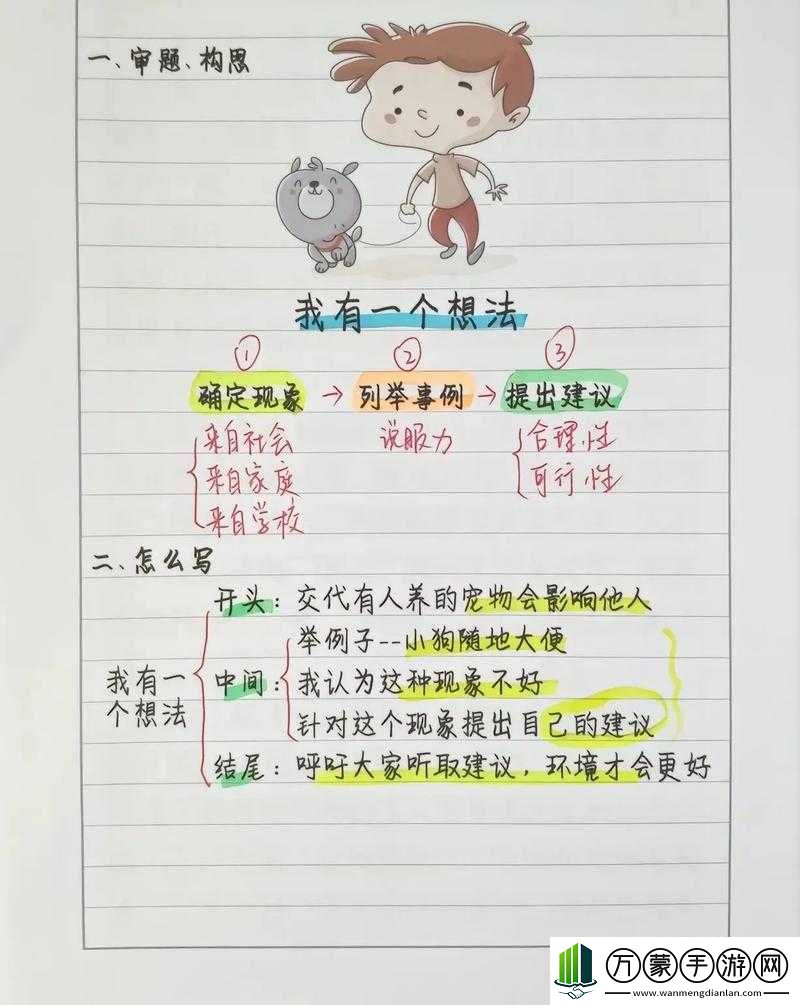 一、审题、构思
我有一个想法
① ② ③
确定现象 → 列举事例 → 提出建议
来自社会 说服力 合理性
来自家庭 可行性
来自学校
二、怎么写
开头：交代有人养的宠物会影响他人
举例子--小狗随地大便
我有一个想法 中间：我认为这种现象不好
针对这个现象提出自己的建议
结尾：呼吁大家听取建议，环境才会更好
万蒙手游网
www.wanmengdianlan.com